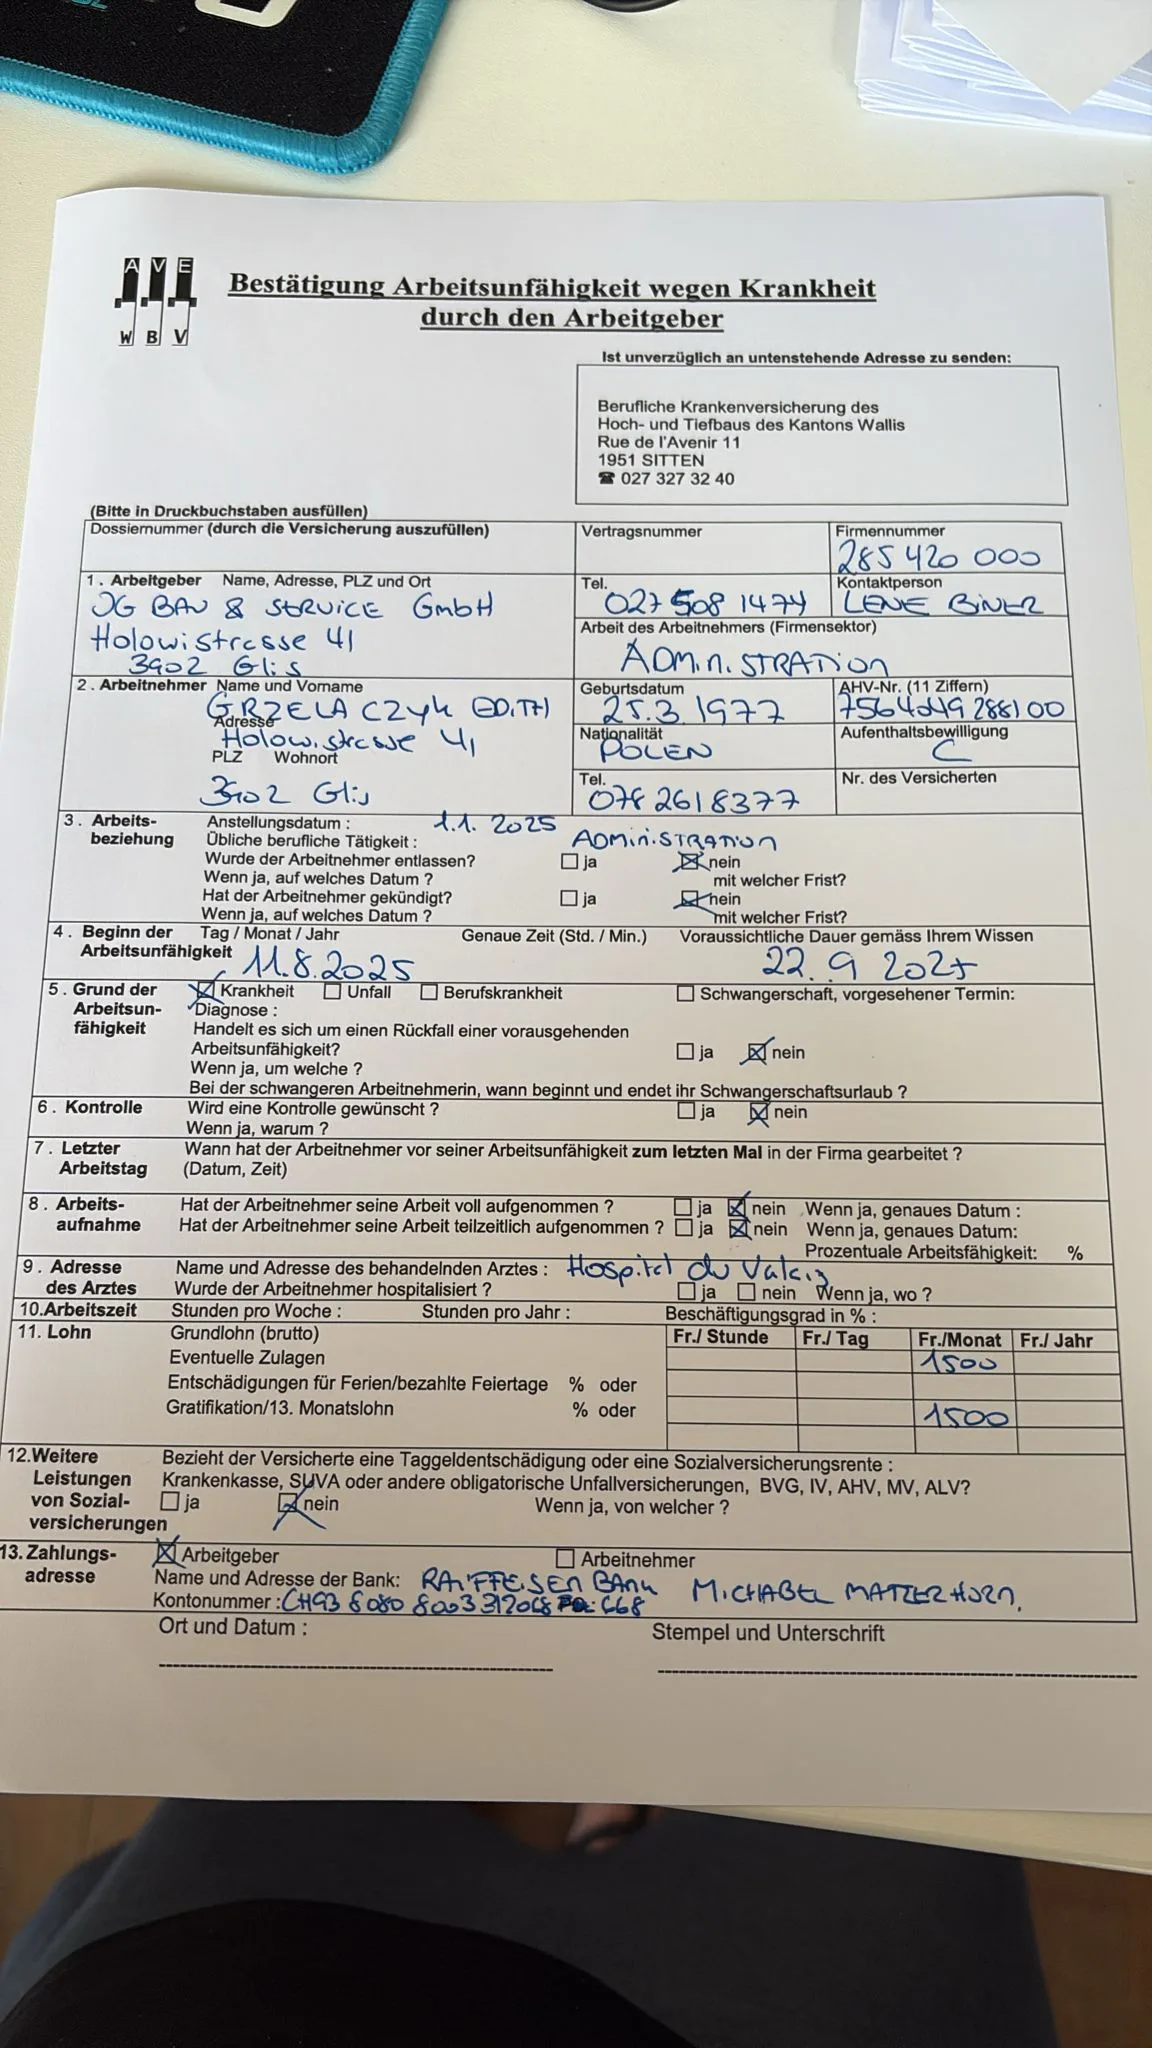 A V E
W B V
Bestätigung Arbeitsunfähigkeit wegen Krankheit
durch den Arbeitgeber
Ist unverzüglich an untenstehende Adresse zu senden:
Berufliche Krankenversicherung des
Hoch- und Tiefbaus des Kantons Wallis
Rue de l'Avenir 11
1951 SITTEN
☎ 027 327 32 40
(Bitte in Druckbuchstaben ausfüllen)
Dossiernummer (durch die Versicherung auszufüllen) Vertragsnummer Firmennummer
285 420 000
1. Arbeitgeber Name, Adresse, PLZ und Ort Tel. Kontaktperson
JG BAU & SERVICE GmbH 027 508 1474 LENE BINER
Arbeit des Arbeitnehmers (Firmensektor)
Holowistrasse 41 ADMINISTRATION
3902 Glis
2. Arbeitnehmer Name und Vorname Geburtsdatum AHV-Nr. (11 Ziffern)
GRZELACZYK EDITH 25.3.1977
Adresse Nationalität Aufenthaltsbewilligung
Holowistrasse 41 POLEN C
PLZ Wohnort
Tel. Nr. des Versicherten
3902 Glis 078 2618377
3. Arbeits- Anstellungsdatum : 1.1. 2025
beziehung Übliche berufliche Tätigkeit : ADMINISTRATION
Wurde der Arbeitnehmer entlassen? ☐ ja ☒ nein
Wenn ja, auf welches Datum ? mit welcher Frist?
Hat der Arbeitnehmer gekündigt? ☐ ja ☒ nein
Wenn ja, auf welches Datum ? mit welcher Frist?
4. Beginn der Tag / Monat / Jahr Genaue Zeit (Std. / Min.) Voraussichtliche Dauer gemäss Ihrem Wissen
Arbeitsunfähigkeit 11.8.2025 22. 9 2025
5. Grund der ☒ Krankheit ☐ Unfall ☐ Berufskrankheit ☐ Schwangerschaft, vorgesehener Termin:
Arbeitsun- Diagnose :
fähigkeit Handelt es sich um einen Rückfall einer vorausgehenden
Arbeitsunfähigkeit? ☐ ja ☒ nein
Wenn ja, um welche ?
Bei der schwangeren Arbeitnehmerin, wann beginnt und endet ihr Schwangerschaftsurlaub ?
6. Kontrolle Wird eine Kontrolle gewünscht ? ☐ ja ☒ nein
Wenn ja, warum ?
7. Letzter Wann hat der Arbeitnehmer vor seiner Arbeitsunfähigkeit zum letzten Mal in der Firma gearbeitet ?
Arbeitstag (Datum, Zeit)
8. Arbeits- Hat der Arbeitnehmer seine Arbeit voll aufgenommen ? ☐ ja ☒ nein Wenn ja, genaues Datum :
aufnahme Hat der Arbeitnehmer seine Arbeit teilzeitlich aufgenommen ? ☐ ja ☒ nein Wenn ja, genaues Datum:
Prozentuale Arbeitsfähigkeit: %
9. Adresse Name und Adresse des behandelnden Arztes : Hospital du Valais
des Arztes Wurde der Arbeitnehmer hospitalisiert ? ☐ ja ☐ nein Wenn ja, wo ?
10.Arbeitszeit Stunden pro Woche : Stunden pro Jahr : Beschäftigungsgrad in % :
11. Lohn Grundlohn (brutto) Fr./ Stunde Fr./ Tag Fr./Monat Fr./ Jahr
1500
Eventuelle Zulagen
Entschädigungen für Ferien/bezahlte Feiertage % oder
Gratifikation/13. Monatslohn % oder 1500
12.Weitere Bezieht der Versicherte eine Taggeldentschädigung oder eine Sozialversicherungsrente :
Leistungen Krankenkasse, SUVA oder andere obligatorische Unfallversicherungen, BVG, IV, AHV, MV, ALV?
von Sozial- ☐ ja ☒ nein Wenn ja, von welcher ?
versicherungen
13. Zahlungs- ☒ Arbeitgeber ☐ Arbeitnehmer
adresse Name und Adresse der Bank: RAIFFEISEN BANK MICHABEL MATTERHORN,
Kontonummer : CH93 8080 8003
Ort und Datum : Stempel und Unterschrift